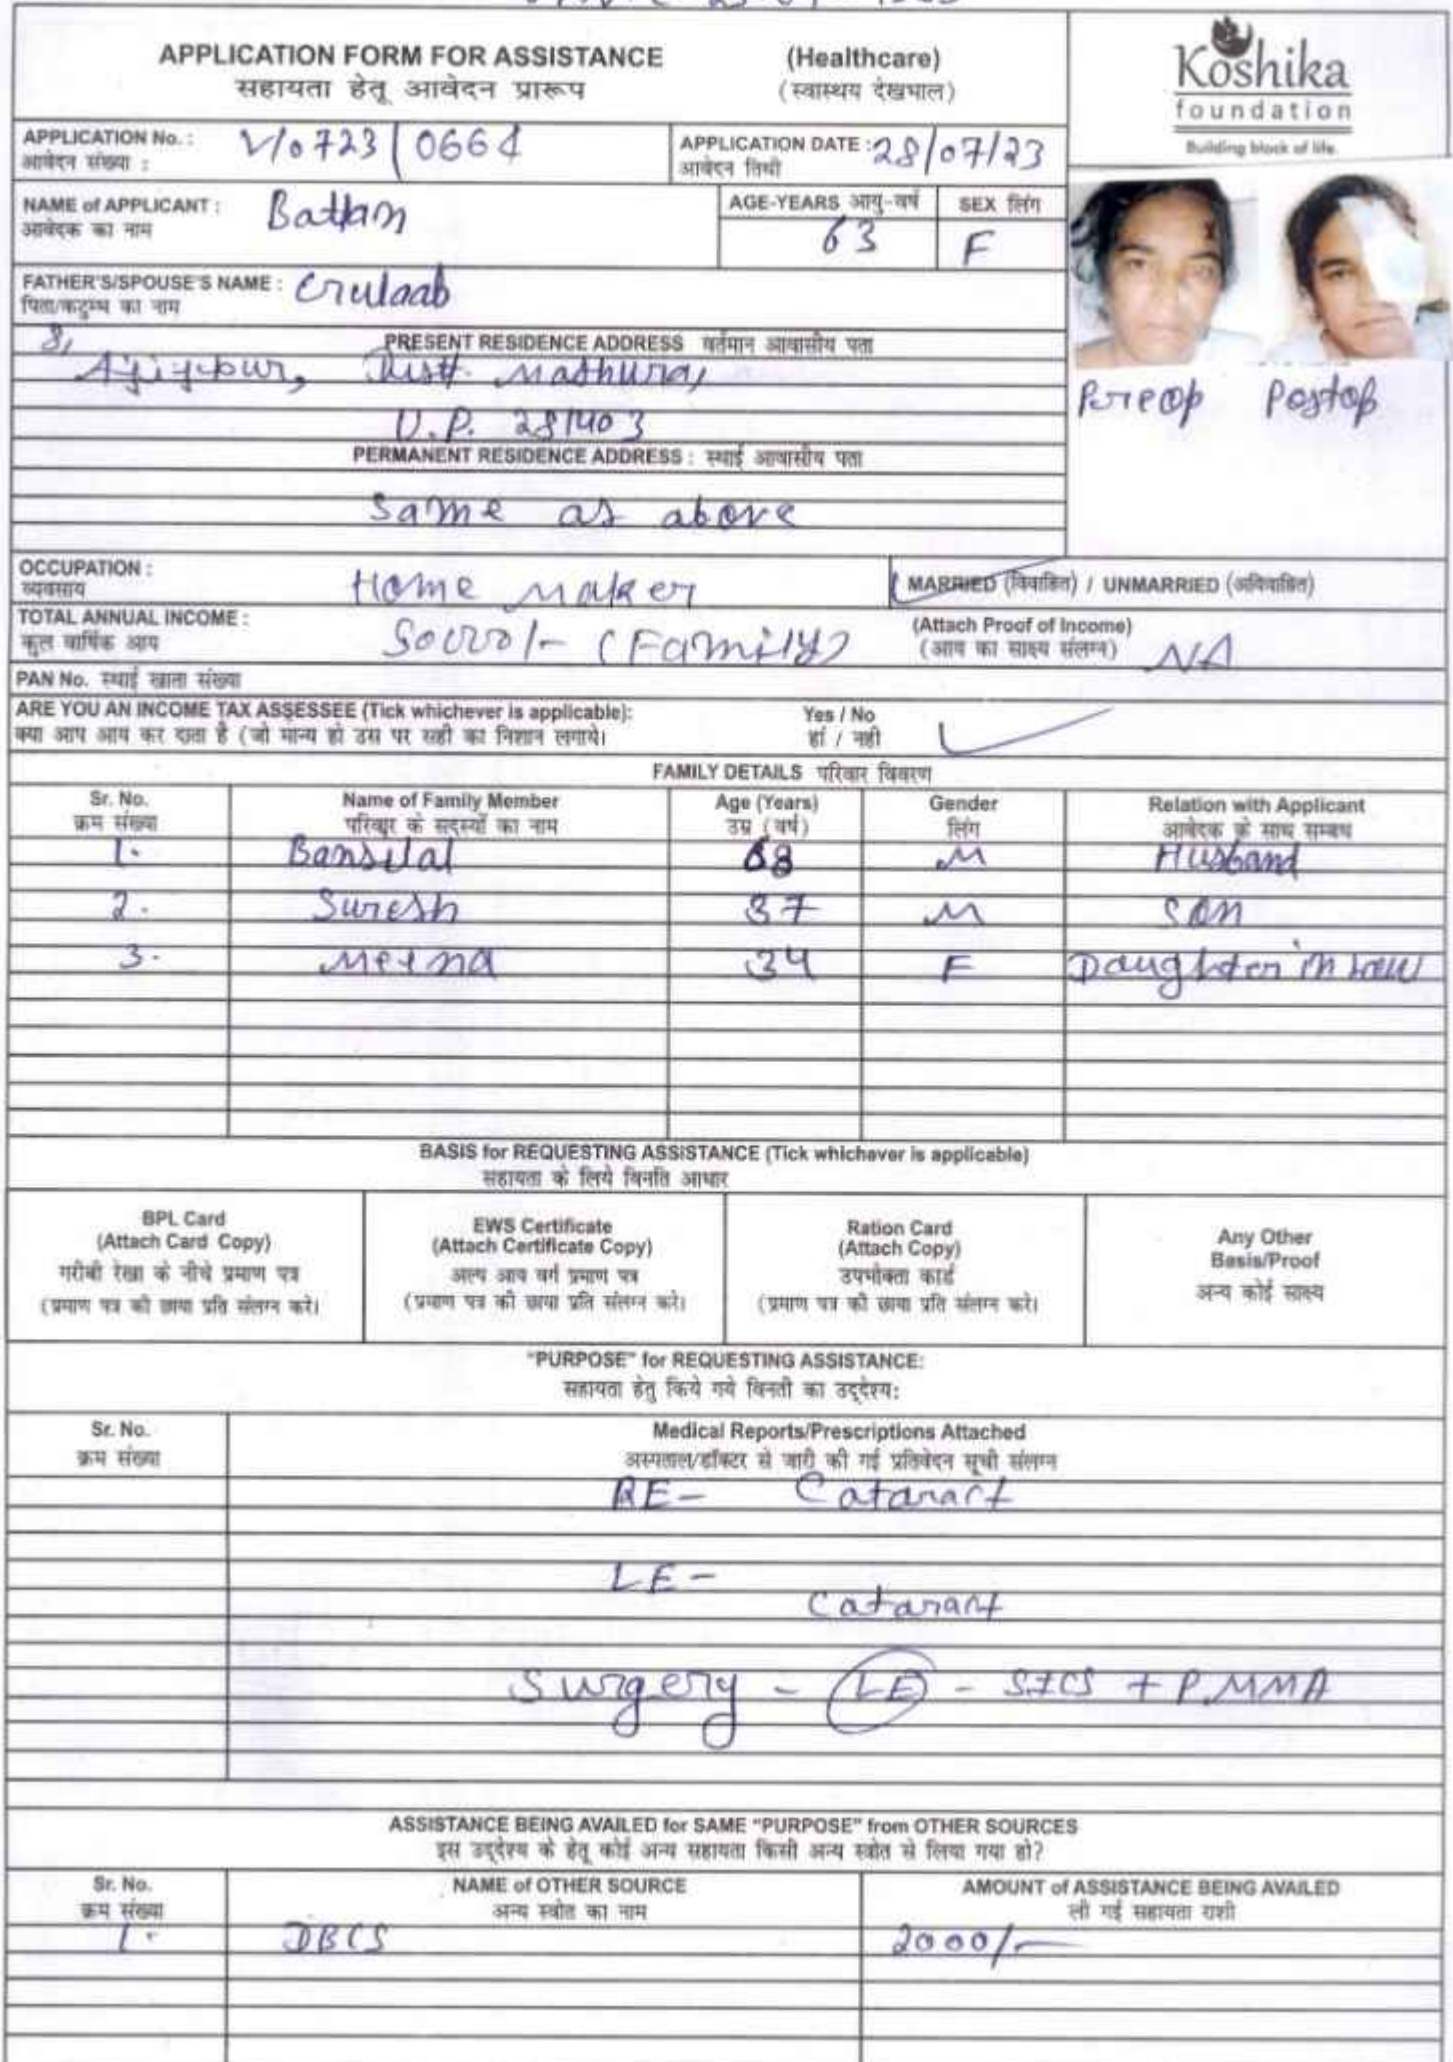 APPLICATION FORM FOR ASSISTANCE (Healthcare)
सहायता हेतू आवेदन प्रारूप (स्वास्थय देखभाल)
Koshika
foundation
Building block of life.
APPLICATION No. : V/0723/0664
आवेदन संख्या :
APPLICATION DATE : 28/07/23
आवेदन तिथी
NAME of APPLICANT : Battan
आवेदक का नाम
AGE-YEARS आयु-वर्ष 63
SEX लिंग F
FATHER'S/SPOUSE'S NAME : Grulaab
पिता/कटुम्ब का नाम
PRESENT RESIDENCE ADDRESS वर्तमान आवासीय पता
Distt. Mathura,
U.P. 281403
Preop Postop
PERMANENT RESIDENCE ADDRESS : स्थाई आवासीय पता
Same as above
OCCUPATION : Home Maker
व्यवसाय
MARRIED (विवाहित) / UNMARRIED (अविवाहित)
TOTAL ANNUAL INCOME : (Family)
कुल वार्षिक आय
(Attach Proof of Income) NA
(आय का साक्ष्य संलग्न)
PAN No. स्थाई खाता संख्या
ARE YOU AN INCOME TAX ASSESSEE (Tick whichever is applicable): Yes / No
क्या आप आय कर दाता है (जो मान्य हो उस पर सही का निशान लगाये। हां / नही
FAMILY DETAILS परिवार विवरण
Sr. No. Name of Family Member Age (Years) Gender Relation with Applicant
क्रम संख्या परिवार के सदस्यों का नाम उम्र (वर्ष) लिंग आवेदक के साथ सम्बध
1. Bansilal 68 M Husband
2. Suresh 37 M Son
3. Meena 34 F Daughter in Law
BASIS for REQUESTING ASSISTANCE (Tick whichever is applicable)
सहायता के लिये विनति आधार
BPL Card
(Attach Card Copy)
गरीबी रेखा के नीचे प्रमाण पत्र
(प्रमाण पत्र की छाया प्रति संलग्न करे।
EWS Certificate
(Attach Certificate Copy)
अल्प आय वर्ग प्रमाण पत्र
(प्रमाण पत्र की छाया प्रति संलग्न करे।
Ration Card
(Attach Copy)
उपभोक्ता कार्ड
(प्रमाण पत्र की छाया प्रति संलग्न करे।
Any Other
Basis/Proof
अन्य कोई साक्ष्य
"PURPOSE" for REQUESTING ASSISTANCE:
सहायता हेतु किये गये विनती का उद्देश्य:
Sr. No. Medical Reports/Prescriptions Attached
क्रम संख्या अस्पताल/डॉक्टर से जारी की गई प्रतिवेदन सूची संलग्न
RE- Cataract
LE-
Cataract
Surgery - LE - SICS + PMMA
ASSISTANCE BEING AVAILED for SAME "PURPOSE" from OTHER SOURCES
इस उद्देश्य के हेतू कोई अन्य सहायता किसी अन्य स्त्रोत से लिया गया हो?
Sr. No. NAME of OTHER SOURCE AMOUNT of ASSISTANCE BEING AVAILED
क्रम संख्या अन्य स्त्रोत का नाम ली गई सहायता राशी
1. DBCS 2000/-